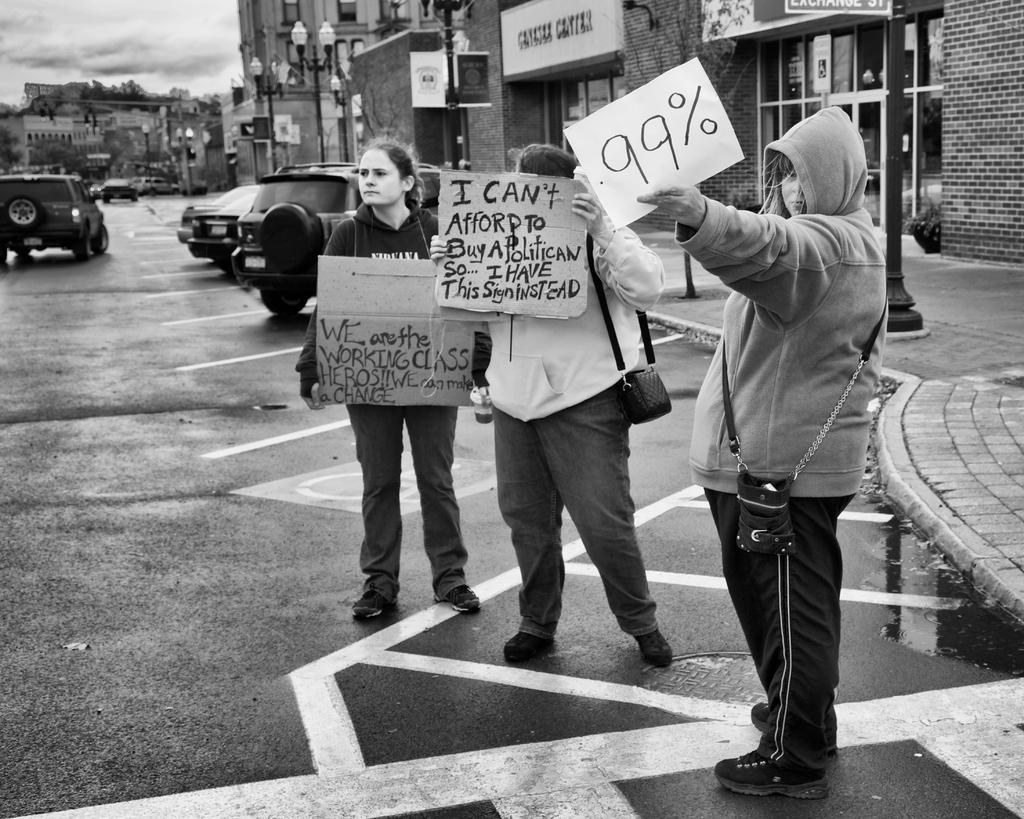 GENESEE CENTER
EXCHANGE ST
.99%
I CAN'T
AFFORD TO
BUY A POLITICAN
SO... I HAVE
This Sign INSTEAD
NIRVANA
WE are the
WORKING CLASS
HEROS!! WE can make
a CHANGE